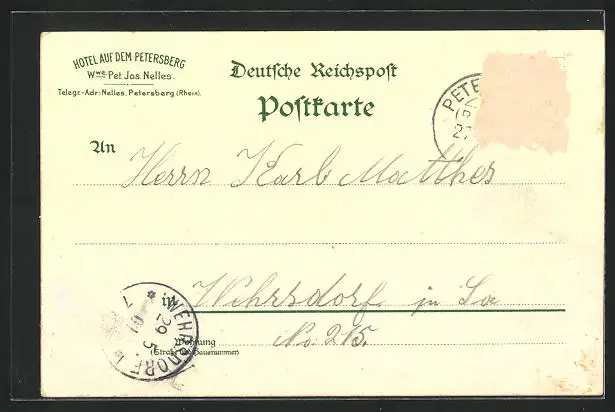 HOTEL AUF DEM PETERSBERG
Wwe. Pet. Jos. Nelles.
Telegr.-Adr: Nelles, Petersberg (Rhein).
Deutsche Reichspost
Postkarte
PETE
27
An
Herrn Karl Matthes
in Wehrsdorf in Sa
No. 215.
Wohnung
(Straße und Hausnummer)
WEHRSDORF
29 5
01
7